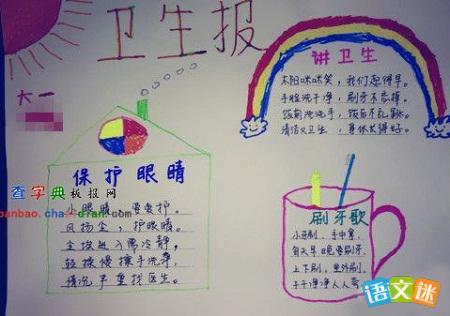 卫生报
大一
讲卫生
太阳咪咪笑，我们起得早。
手脸洗干净，刷牙不忘掉。
饭前洗洗手，饭后不乱跑。
清洁又卫生，身体太得好。
保护眼睛
小眼睛，要爱护。
风扬尘，护眼睛。
尘埃进入需冷静，
轻揉慢擦手洗净，
情况严重找医生。
刷牙歌
小牙刷，手中拿，
每天早晚要刷牙，
上下刷，里外刷，
干干净净人人夸
查字典板报网
banbao.chazidian.com
语文迷